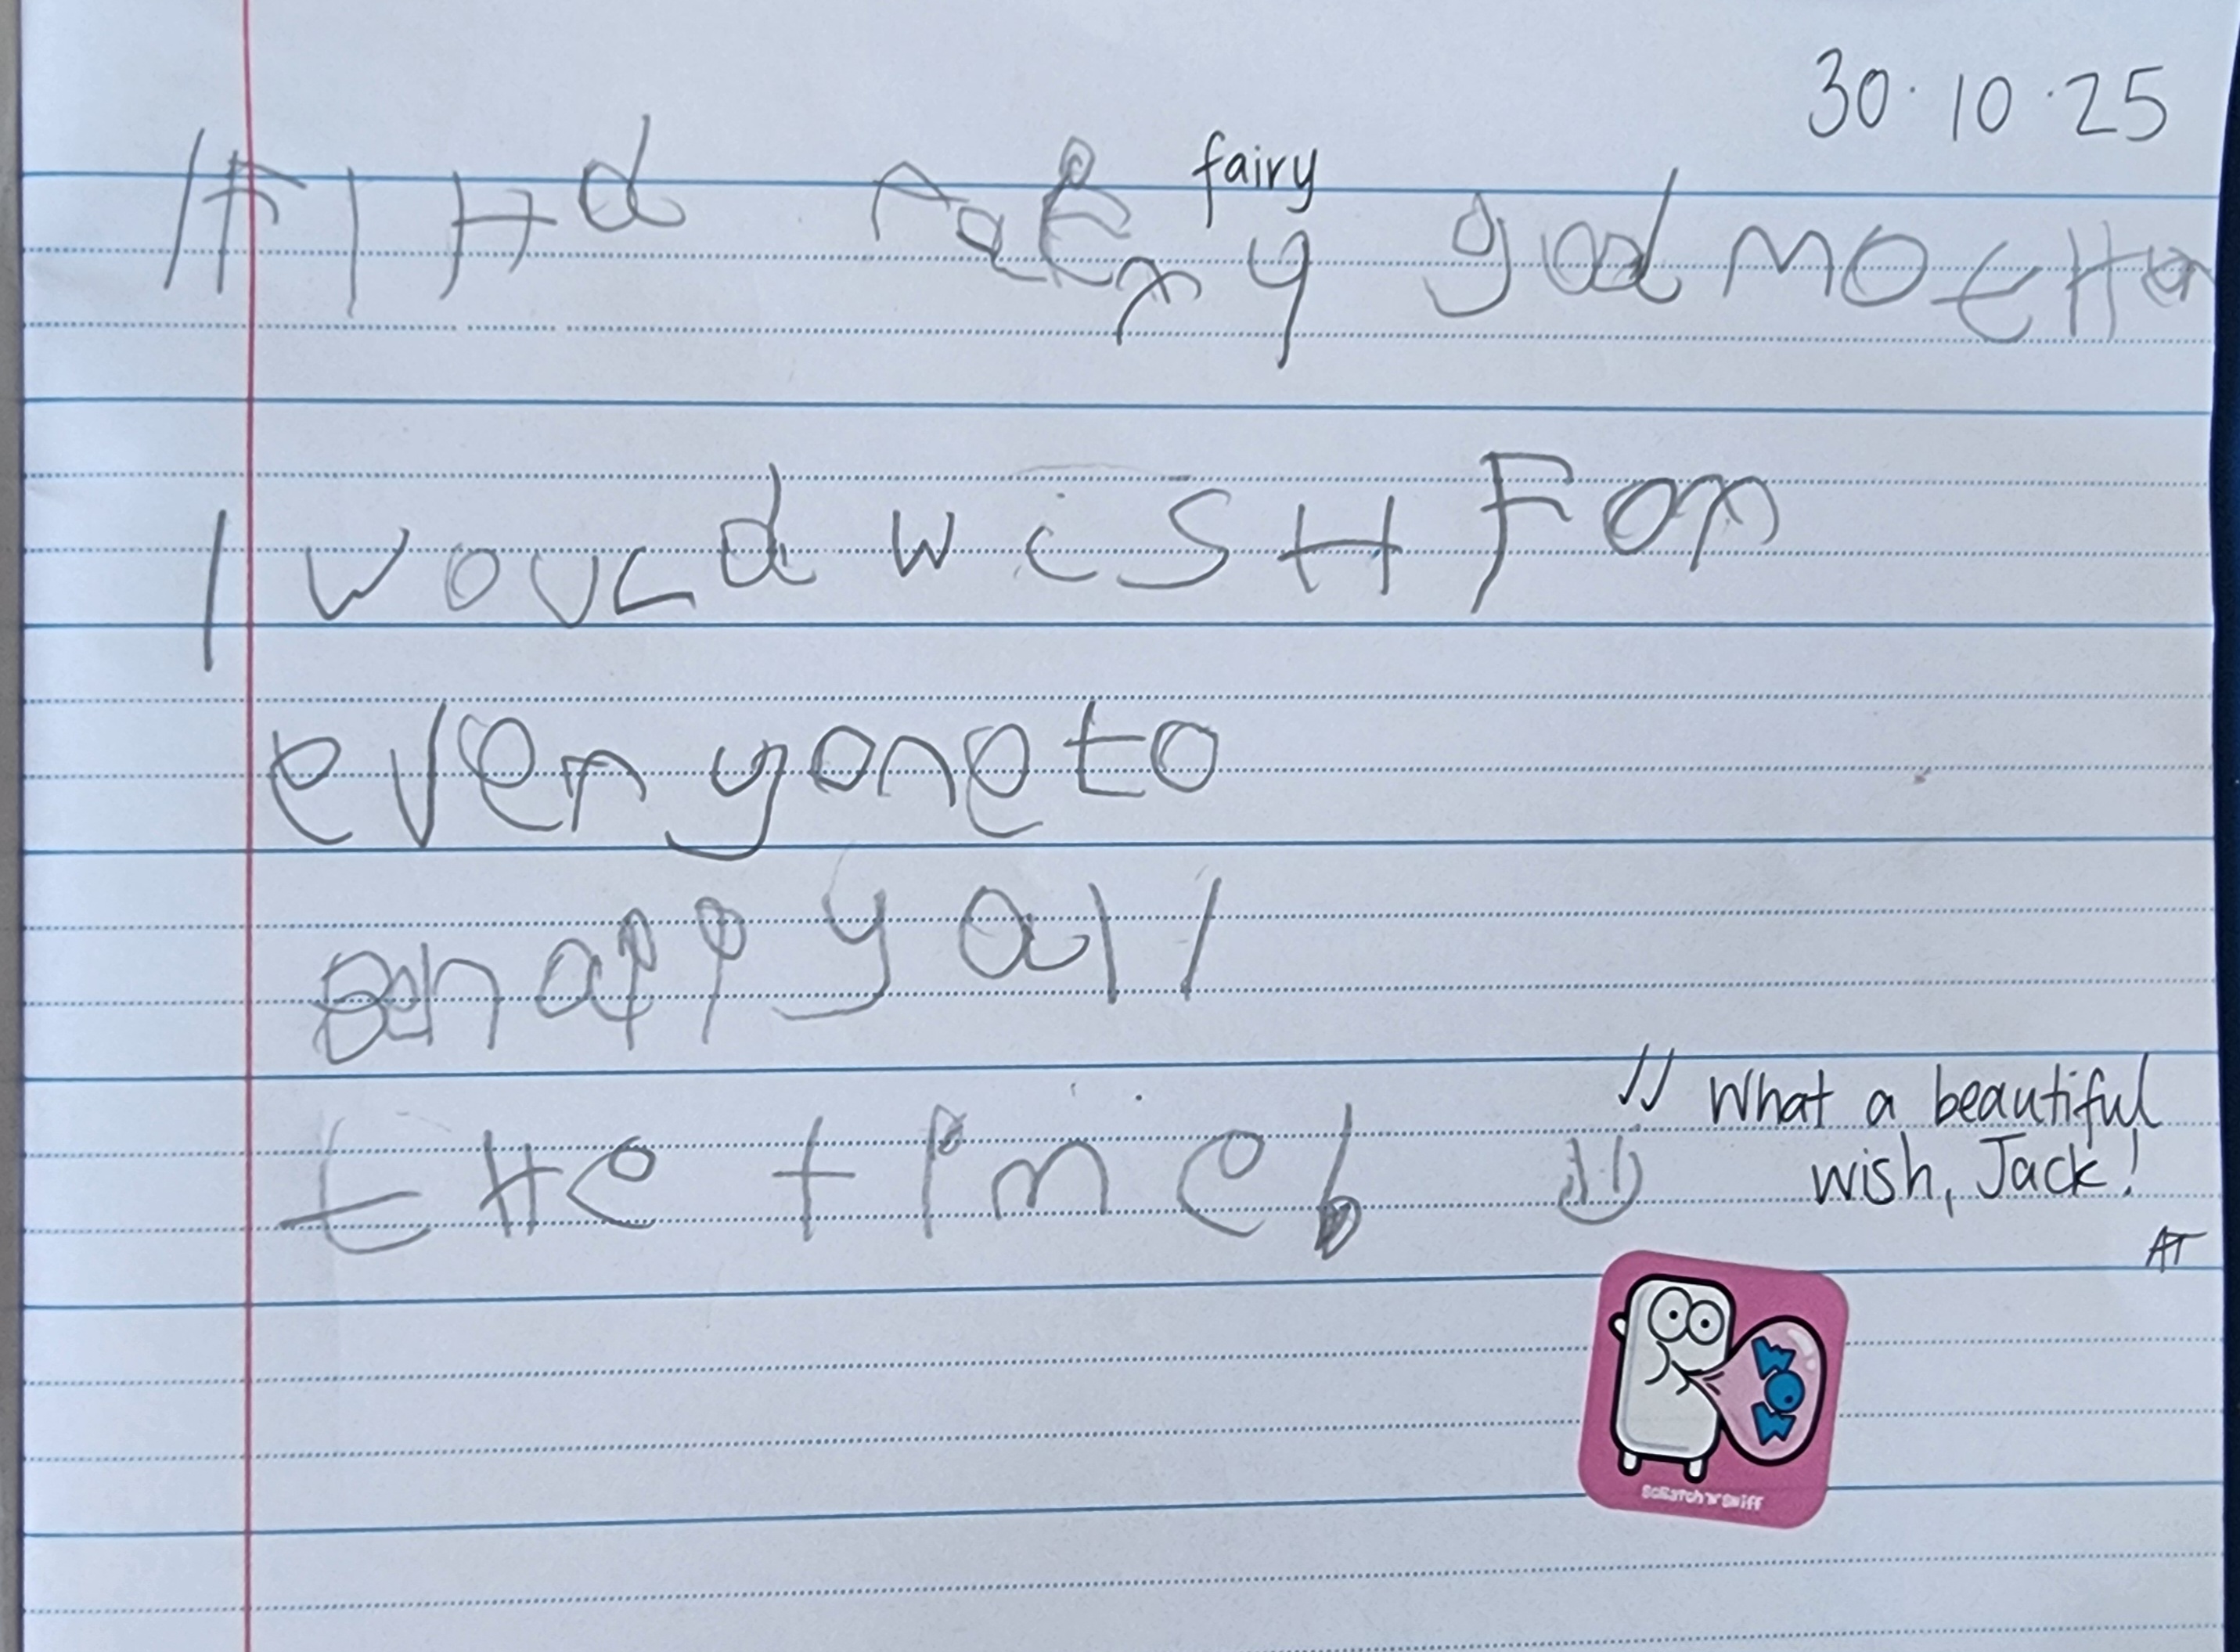 30.10.25
fairy
If I Had faery godmother
I would wisH For
everyone to
be happy all
tHe time
!! What a beautiful
wish, Jack!
AT
WOW
Scratch 'n' Sniff